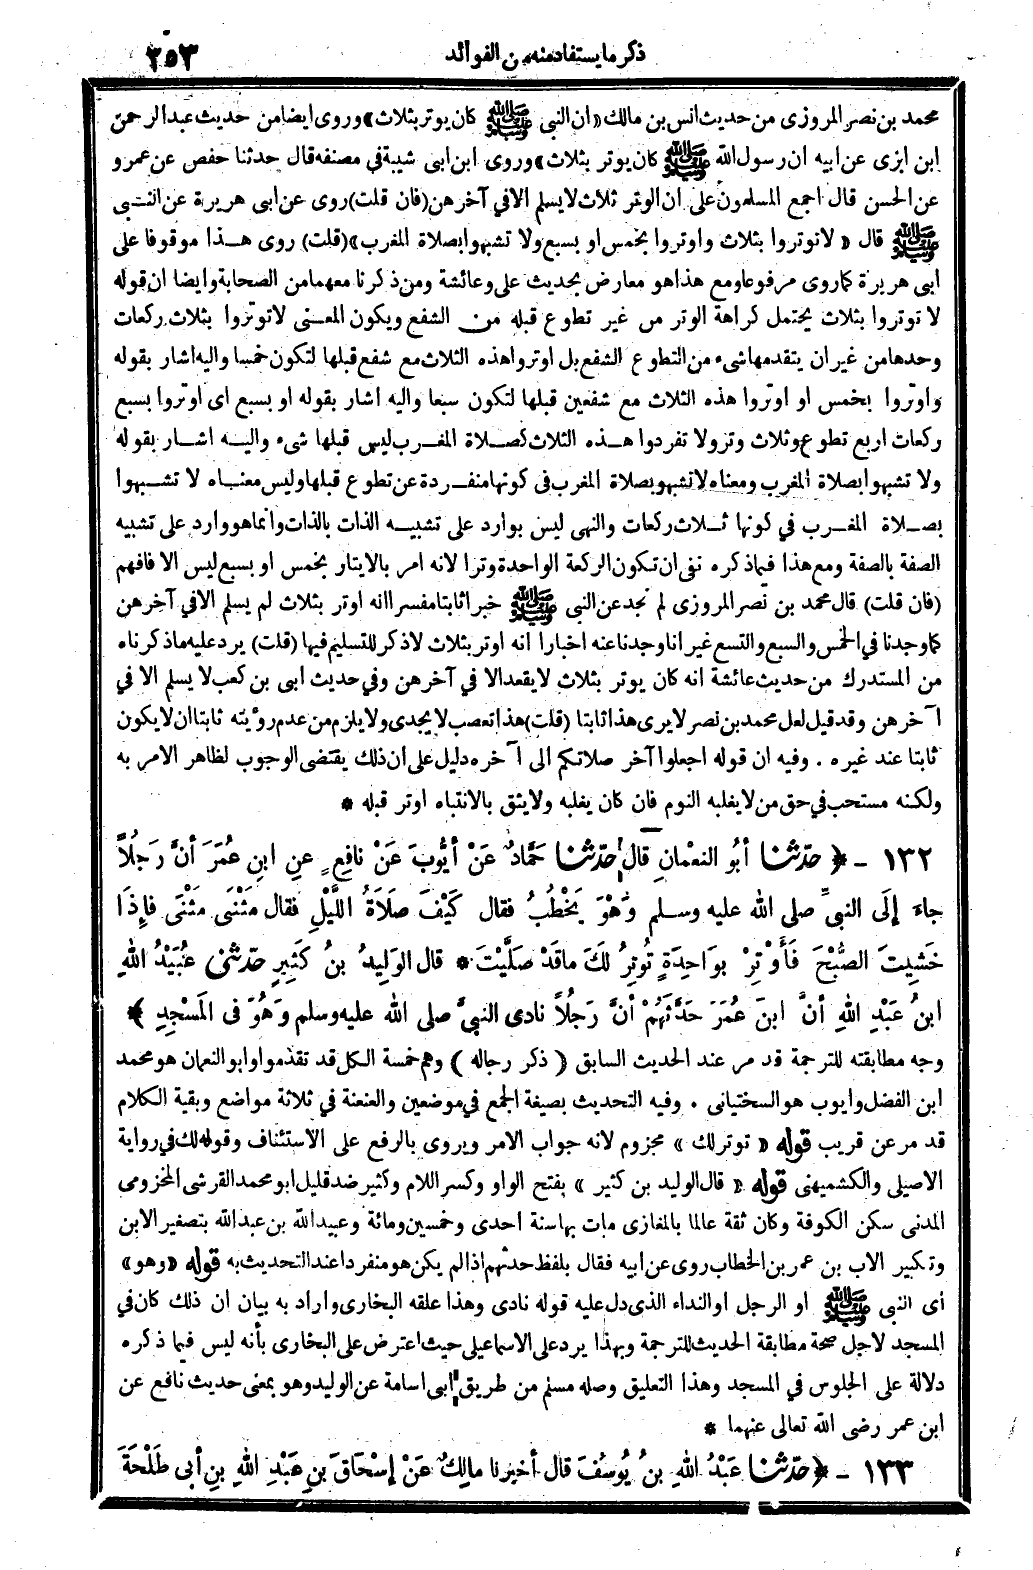 ذكر ما يستفاد منه من الفوائد ٢٥٣
محمد بن نصر المروزى من حديث انس بن مالك «ان النبى ﷺ كان يوتر بثلاث» وروى ايضا من حديث عبد الرحمن
ابن ابزى عن ابيه ان رسول الله ﷺ كان يوتر بثلاث» وروى ابن ابى شيبة فى مصنفه قال حدثنا حفص عن عمرو
عن الحسن قال اجمع المسلمون على ان الوتر ثلاث لا يسلم الا في آخرهن (فان قلت) روى عن ابى هريرة عن النبى
ﷺ قال « لا توتروا بثلاث واوتروا بخمس او بسبع ولا تشبهوا بصلاة المغرب» (قلت) روى هذا موقوفا على
ابى هريرة كما روى مرفوعا ومع هذا هو معارض بحديث على وعائشة ومن ذكرنا معهما من الصحابة وايضا ان قوله
لا توتروا بثلاث يحتمل كراهة الوتر من غير تطوع قبله من الشفع ويكون المعنى لا توتروا بثلاث ركعات
وحدها من غير ان يتقدمها شىء من التطوع الشفع بل اوتروا هذه الثلاث مع شفع قبلها لتكون خمسا واليه اشار بقوله
واوتروا بخمس او اوتروا هذه الثلاث مع شفعين قبلها لتكون سبعا واليه اشار بقوله او بسبع اى اوتروا بسبع
ركعات اربع تطوع وثلاث وتر ولا تفردوا هذه الثلاث كصلاة المغرب ليس قبلها شىء واليه اشار بقوله
ولا تشبهوا بصلاة المغرب ومعناه لا تشبهو بصلاة المغرب فى كونها منفردة عن تطوع قبلها وليس معناه لا تشبهوا
بصلاة المغرب في كونها ثلاث ركعات والنهى ليس بوارد على تشبيه الذات بالذات وانما هو وارد على تشبيه
الصفة بالصفة ومع هذا فيما ذكره نفى ان تكون الركعة الواحدة وترا لانه امر بالايتار بخمس او بسبع ليس الا فافهم
(فان قلت) قال محمد بن نصر المروزى لم نجد عن النبى ﷺ خبرا ثابتا مفسرا انه اوتر بثلاث لم يسلم الا في آخرهن
كما وجدنا في الخمس والسبع والتسع غير انا وجدنا عنه اخبارا انه اوتر بثلاث لا ذكر للتسليم فيها (قلت) يرد عليه ما ذكرناه
من المستدرك من حديث عائشة انه كان يوتر بثلاث لا يقعد الا في آخرهن وفي حديث ابى بن كعب لا يسلم الا في
آخرهن وقد قيل لعل محمد بن نصر لا يرى هذا ثابتا (قلت) هذا تعصب لا يجدى ولا يلزم من عدم رؤيته ثابتا ان لا يكون
ثابتا عند غيره . وفيه ان قوله اجعلوا آخر صلاتكم الى آخره دليل على ان ذلك يقتضى الوجوب لظاهر الامر به
ولكنه مستحب في حق من لا يغلبه النوم فان كان يغلبه ولا يثق بالانتباه اوتر قبله *
١٣٢ - ﴿ حدّثنا أبُو النعْمانِ قال حدّثنا حَمَّادٌ عَنْ أيُّوبَ عَنْ نافِعٍ عنِ ابنِ عُمَرَ أنَّ رَجُلاً
جاءَ إلَى النبىِّ صلى الله عليه وسلم وَهْوَ يَخْطُبُ فقال كَيْفَ صَلاَةُ اللَّيْلِ فقال مَثْنَى مَثْنَى فإذَا
خَشِيتَ الصُّبْحَ فَأَوْتِرْ بِوَاحِدَةٍ تُوتِرُ لكَ ماقَدْ صَلَّيْتَ * قال الوَلِيدُ بنُ كَثِيرٍ حدّثنى عُبَيْدُ اللهِ
ابنُ عَبْدِ اللهِ أنَّ ابنَ عُمَرَ حَدَّثَهُمْ أنَّ رَجُلاً نادى النبىَّ صلى الله عليه وسلم وَهُوَ فى المَسْجِدِ ﴾
وجه مطابقته للترجمة قد مر عند الحديث السابق ( ذكر رجاله ) وهم خمسة الكل قد تقدموا وابو النعمان هو محمد
ابن الفضل وايوب هو السختيانى . وفيه التحديث بصيغة الجمع في موضعين والعنعنة في ثلاثة مواضع وبقية الكلام
قد مر عن قريب قوله « توتر لك » مجزوم لانه جواب الامر ويروى بالرفع على الاستئناف وقوله لك في رواية
الاصيلى والكشميهنى قوله « قال الوليد بن كثير » بفتح الواو وكسر اللام وكثير ضد قليل ابو محمد القرشى المخزومى
المدنى سكن الكوفة وكان ثقة عالما بالمغازى مات بها سنة احدى وخمسين ومائة وعبيد الله بن عبد الله بتصغير الابن
وتكبير الاب بن عمر بن الخطاب روى عن ابيه فقال بلفظ حدثهم اذا لم يكن هو منفردا عند التحديث به قوله «وهو»
أى النبى ﷺ او الرجل او النداء الذى دل عليه قوله نادى وهذا علقه البخارى واراد به بيان ان ذلك كان في
المسجد لاجل صحة مطابقة الحديث للترجمة وبهذا يرد على الاسماعيلى حيث اعترض على البخارى بأنه ليس فيما ذكره
دلالة على الجلوس في المسجد وهذا التعليق وصله مسلم من طريق ابى اسامة عن الوليد وهو بمعنى حديث نافع عن
ابن عمر رضى الله تعالى عنهما *
١٣٣ - ﴿ حدّثنا عَبْدُ اللهِ بنُ يُوسُفَ قال أخبرنا مالِكٌ عَنْ إسْحَاقَ بنِ عَبْدِ اللهِ بنِ أبى طَلْحَةَ